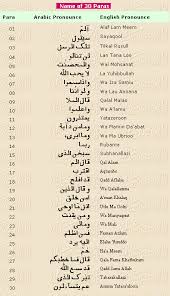 Name of 30 Paras
Para Arabic Pronounce English Pronounce
01 الم Alaf Lam Meem
02 سيقول Sayaqool
03 تلك الرسل Tilkal Rusull
04
05 والمحصنت Wal Mohsanat
06 لا يحب الله La Yuhibbullah
07 واذا سمعوا Wa Iza Samiu
08 ولو اننا Wa Lau Annana
09 قال الملا Qalal Malao
10 واعلموا Wa A'lamu
11 يعتذرون Yatazeroon
12 وما من دابة Wa Mamin Da'abat
13 وما ابرئ Wa Ubrioo
14 ربما Rubama
15 سبحن الذى Subhanallazi
16 قال الم Qal Alam
17 اقترب Aqtarabo
18 قد افلح Qadd Aflaha
19 وقال الذين Wa Qalallazina
20 امن خلق A'man Khalaq
21 اتل ما اوحى Utlu Ma Oohi
22 ومن يقنت Wa Manyaqnut
23 وما لى Wa Mali
24 فمن اظلم Faman Azlam
25 اليه يرد Elahe Yuruddo
26 حم Ha'a Meem
27 قال فما خطبكم Qala Fama Khatbukum
28 قد سمع الله Qadd Sami Allah
29 تبرك الذى Tabarakallazi
30 عم يتساءلون Amma Yatasa'aloon